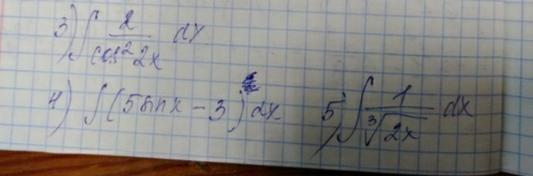 3) ∫ 2/cos² 2x dx
4) ∫(5sinx - 3)dx 5) ∫ 1/∛2x dx